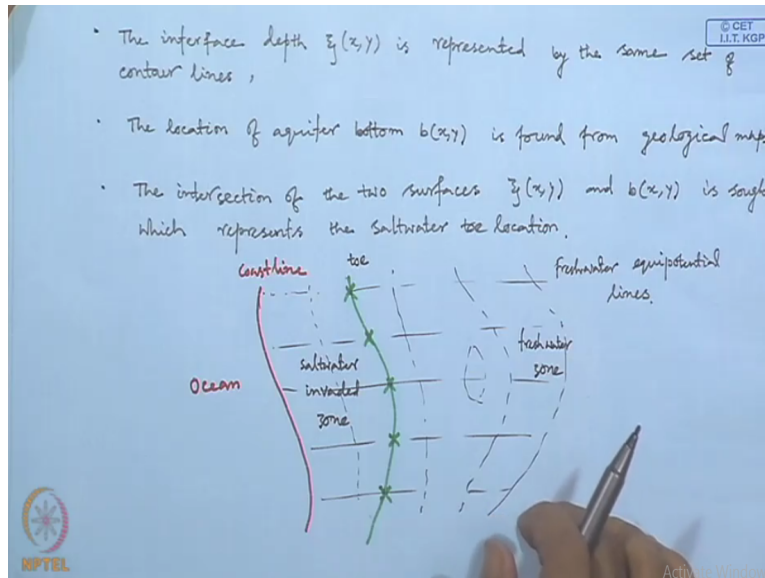 © CET
I.I.T. KGP
· The interface depth ξ(x,y) is represented by the same set of
contour lines,
· The location of aquifer bottom b(x,y) is found from geological maps
· The intersection of the two surfaces ξ(x,y) and b(x,y) is sough
which represents the saltwater toe location.
coastline
toe
freshwater equipotential
lines.
Ocean
saltwater
invaded
zone
freshwater
zone
NPTEL
Activate Window